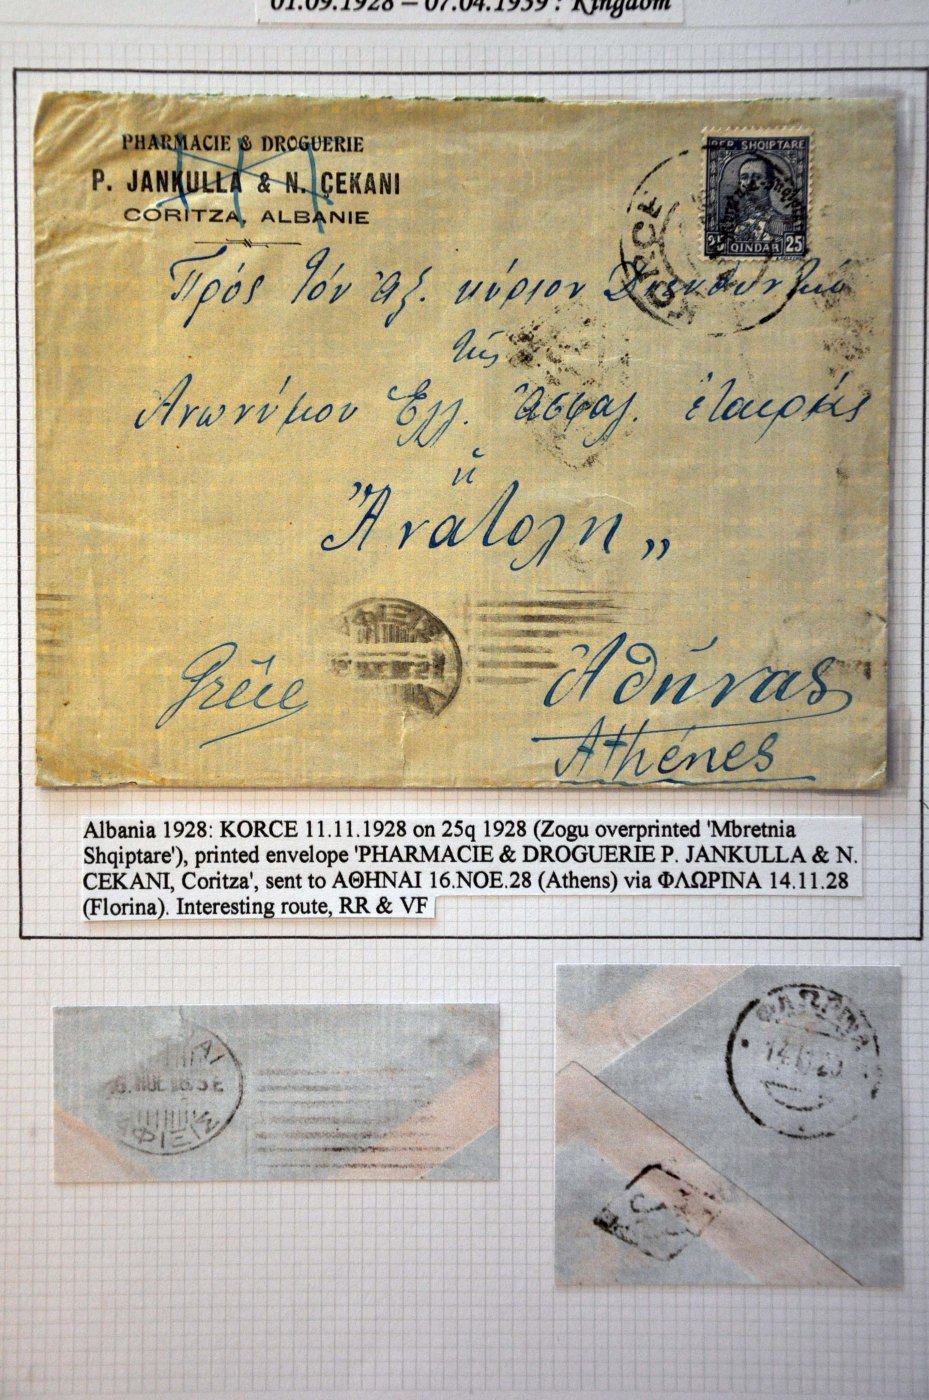 01.09.1928 – 07.04.1939 : Kingdom
PHARMACIE & DROGUERIE
P. JANKULLA & N. ÇEKANI
CORITZA, ALBANIE
REP. SHQIPTARE
25 QINDAR 25
KORCE
Πρός τόν ἀξ. κύριον Διευθυντήν
τῆς
Ἀνωνύμου Ἑλλ. Ἀσφαλ. ἑταιρίας
"
Ἀνατολη „
ΑΦΙΞΙΣ
Grèce
Ἀθήνας
Athénes
Albania 1928: KORCE 11.11.1928 on 25q 1928 (Zogu overprinted 'Mbretnia
Shqiptare'), printed envelope 'PHARMACIE & DROGUERIE P. JANKULLA & N.
CEKANI, Coritza', sent to ΑΘΗΝΑΙ 16.ΝΟΕ.28 (Athens) via ΦΛΩΡΙΝΑ 14.11.28
(Florina). Interesting route, RR & VF
ΦΛΩΡΙΝΑ
ΑΦΙΞΙΣ